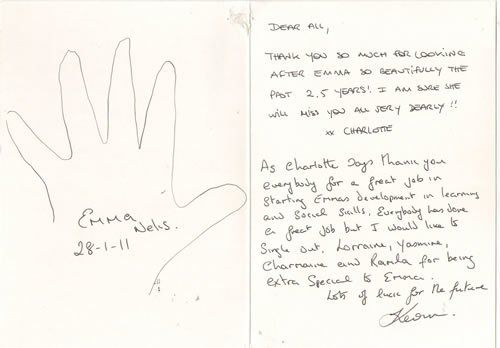 Emma
Nels.
28-1-11
DEAR ALL,
THANK YOU SO MUCH FOR LOOKING
AFTER EMMA SO BEAUTIFULLY THE
PAST 2.5 YEARS! I AM SURE SHE
WILL MISS YOU ALL VERY DEARLY!!
xx CHARLOTTE
As Charlotte Says Thank you
everybody for a great job in
Starting Emmas development in learning
and Social Skills. Everybody has done
a great job but I would like to
Single out. Lorraine, Yasmine,
Charmaine and Ramla for being
extra Special to Emma.
Lots of luck for the future